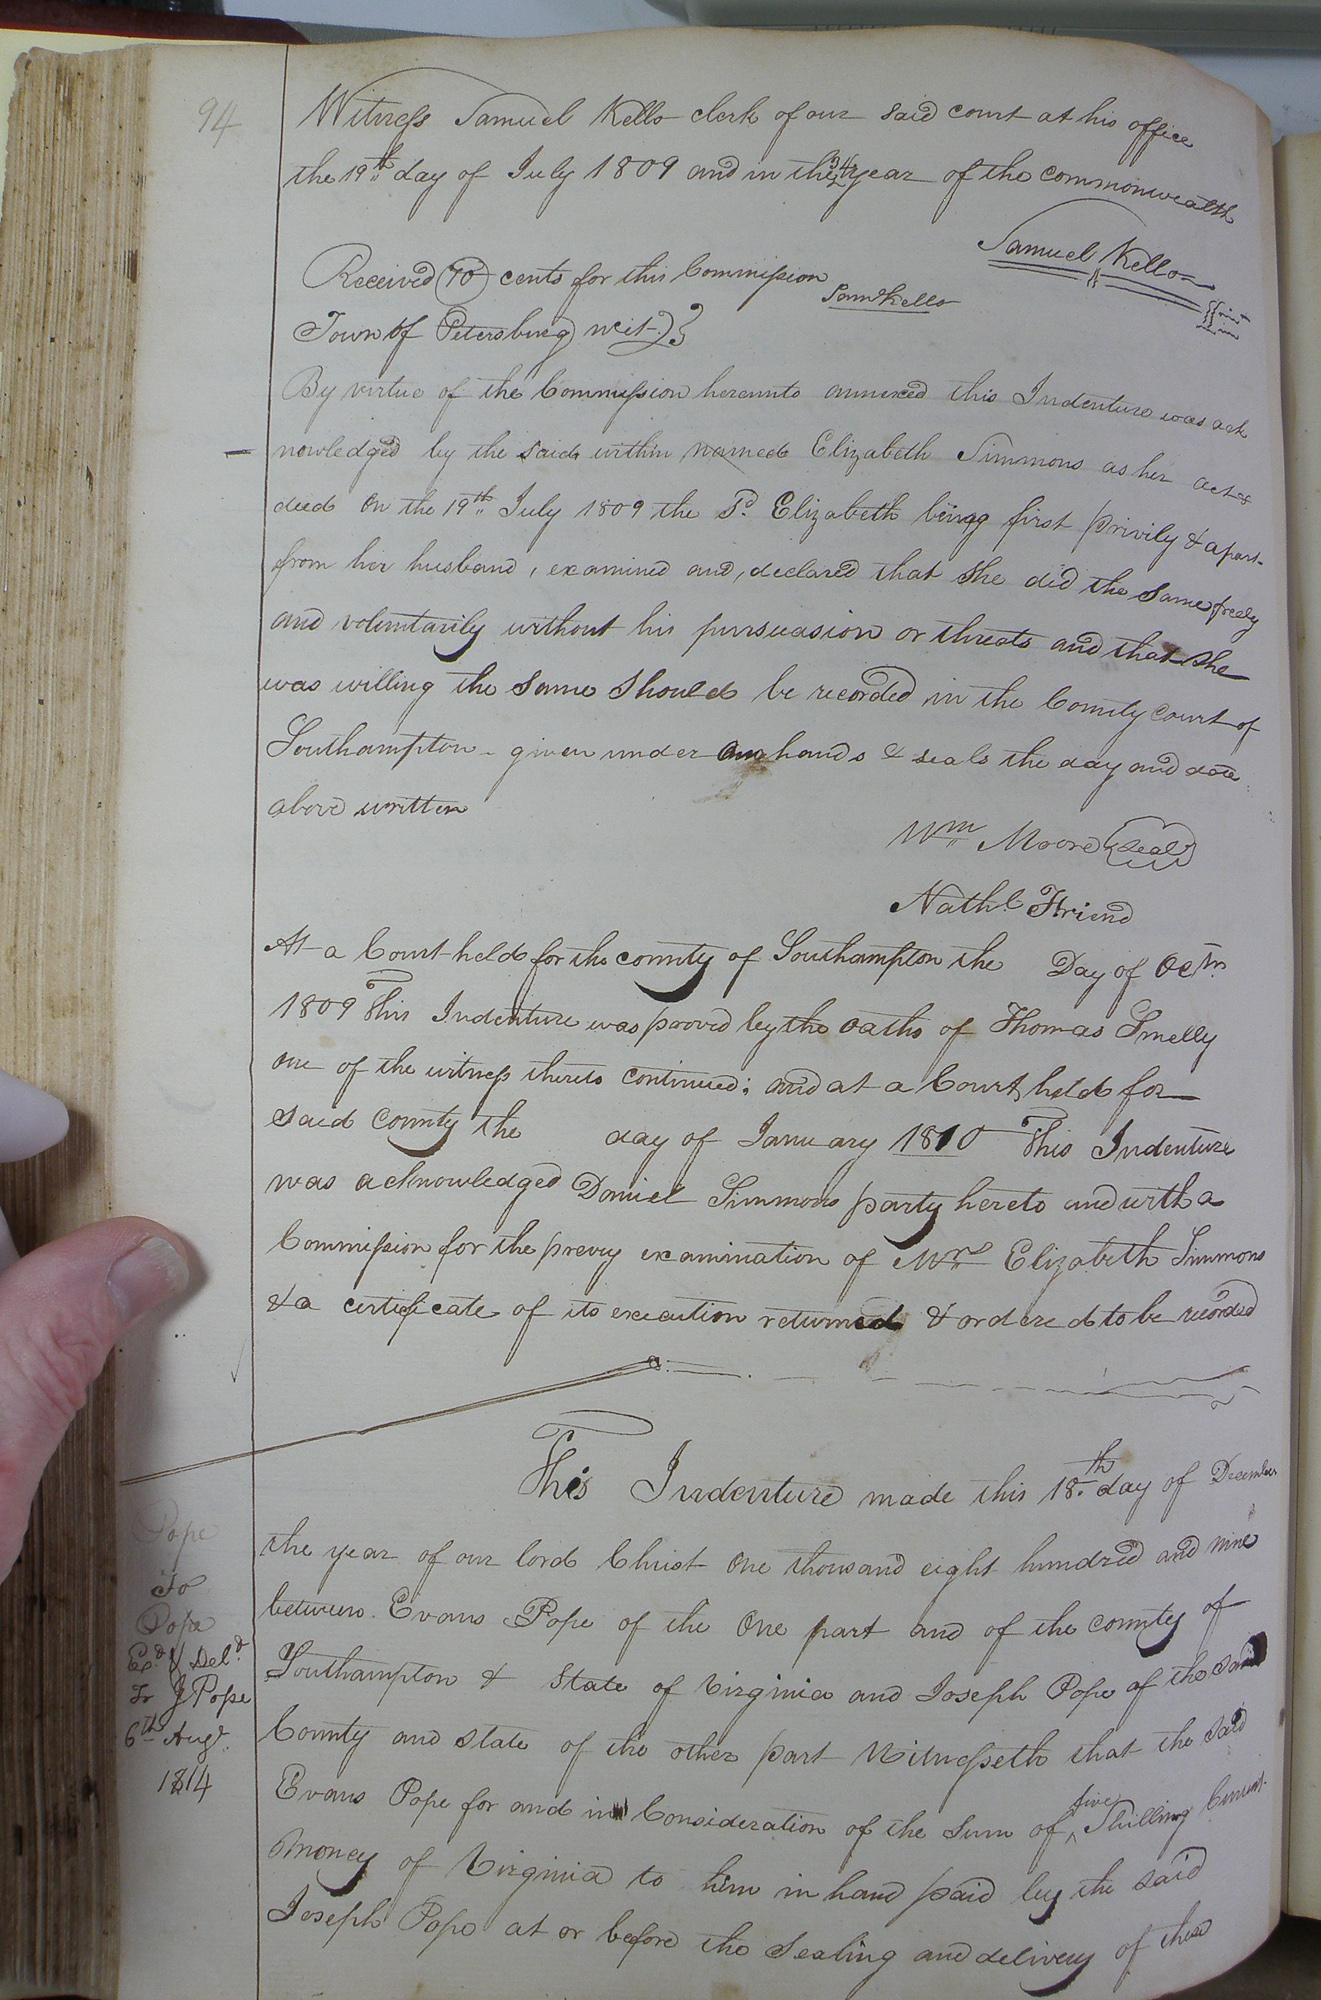 94
Witness Samuel Kello clerk of our said court at his office
the 19th day of July 1809 and in the 34 year of the commonwealth
Samuel Kello
Received 70 cents for this Commission
Saml Kello
Town of Petersburg wit
By virtue of the Commission hereunto annexed this Indenture was ack
nowledged by the said within named Elizabeth Simmons as her act &
deed on the 19th July 1809 the sd. Elizabeth being first privily & apart
from her husband, examined and, declared that she did the same freely
and voluntarily without his pursuasion or threats and that she
was willing the same should be recorded in the County Court of
Southampton - given under our hands & seals the day and date
above written
Wm Moore (seal)
Nathl. Friend
At a Court held for the county of Southampton the Day of Octr
1809 This Indenture was proved by the oaths of Thomas Smelly
one of the witness thereto continued; and at a Court held for
said County the day of January 1810 This Indenture
was acknowledged Daniel Simmons party hereto and with a
Commission for the prevy examination of Mrs Elizabeth Simmons
& a certificate of its execution returned & ordered to be recorded
This Indenture made this 18th day of December
the year of our lord Christ One thousand eight hundred and nine
between Evans Pope of the One part and of the county of
Southampton & State of Virginia and Joseph Pope of the said
County and state of the other part Witnesseth that the said
Evans Pope for and in Consideration of the Sum of five Shilling Current
Money of Virginia to him in hand paid by the said
Joseph Pope at or before the Sealing and delivery of these
Pope
To
Pope
Exd. & Deld.
To J Pope
6th Augt.
1814